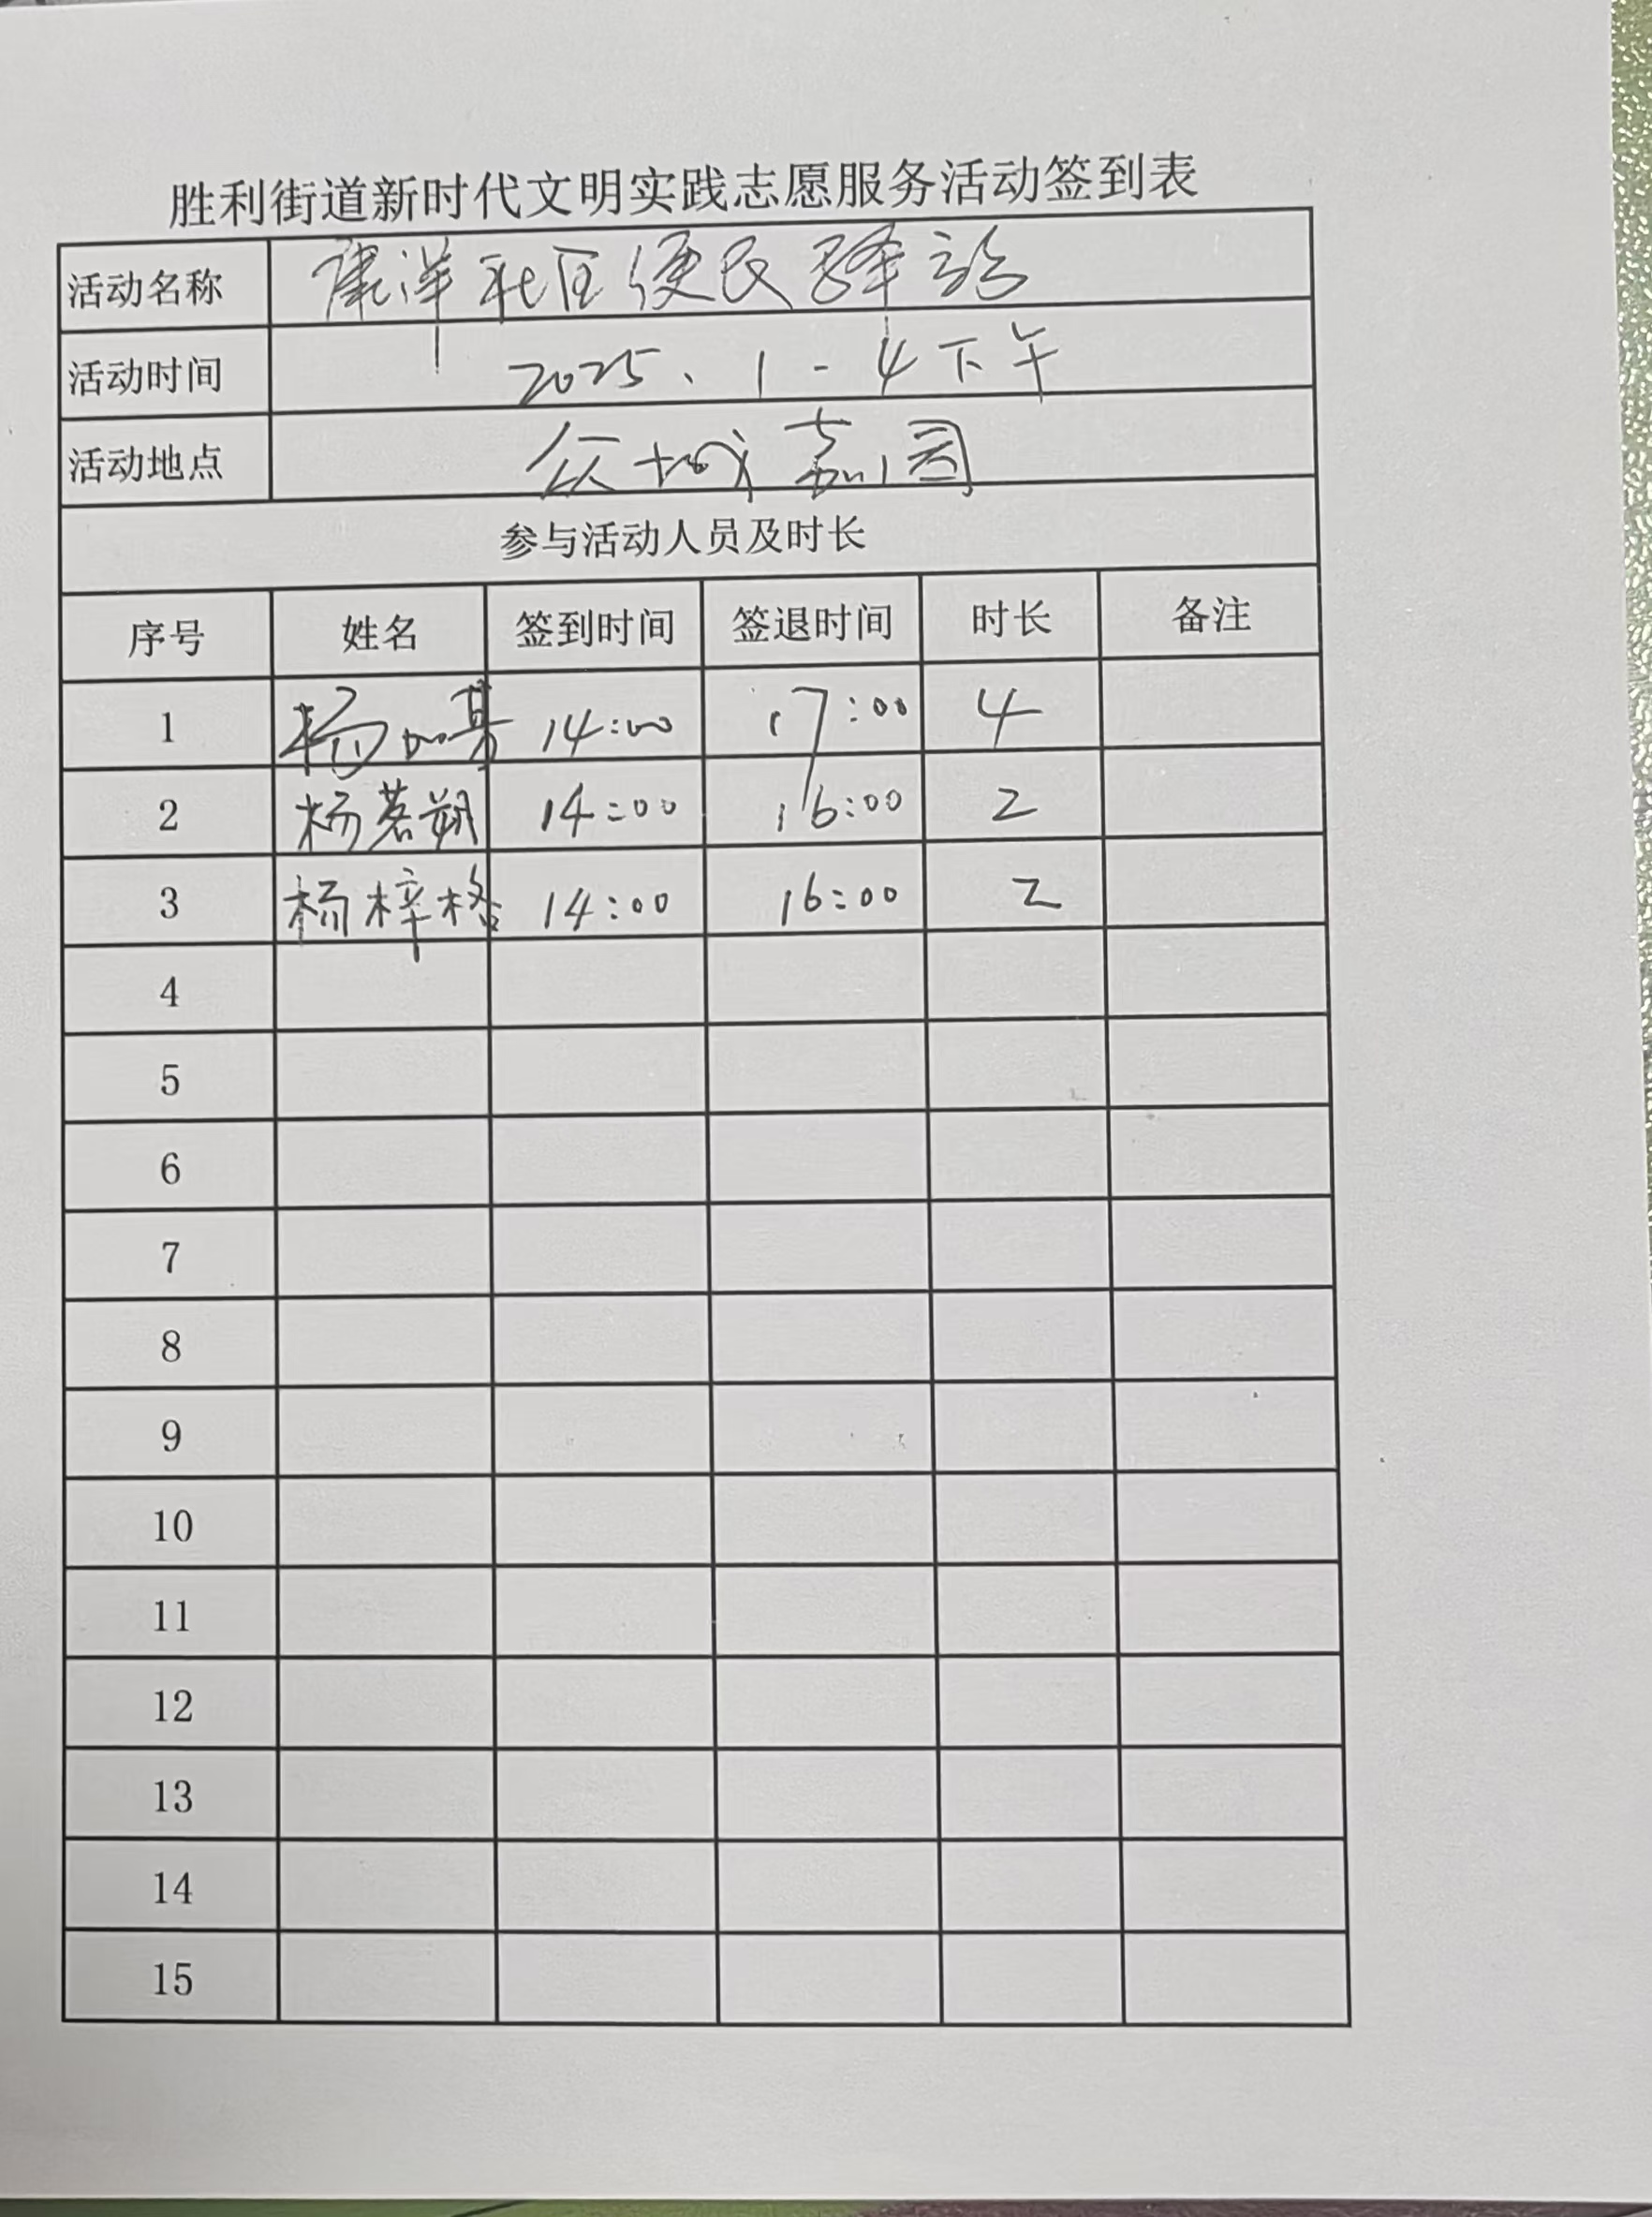 胜利街道新时代文明实践志愿服务活动签到表
活动名称 康洋社区便民驿站
活动时间 2025、1-4下午
活动地点 众城嘉园
参与活动人员及时长
序号 姓名 签到时间 签退时间 时长 备注
1 杨 14:00 17:00 4
2 杨茗朔 14:00 16:00 2
3 杨梓格 14:00 16:00 2
4
5
6
7
8
9
10
11
12
13
14
15